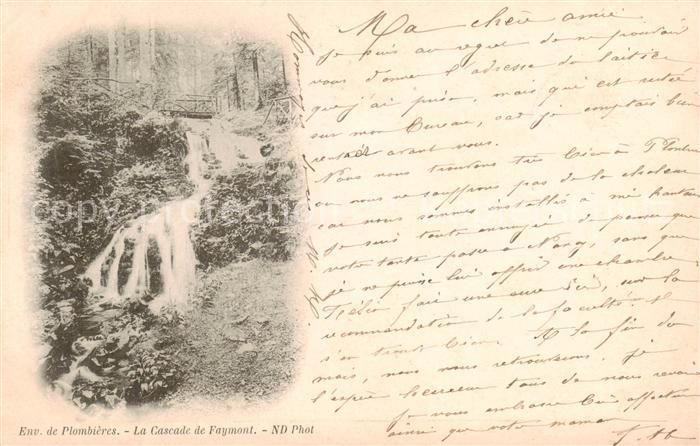 Ma chère amie
Je suis au regret de ne pouvoir
vous donner l'adresse de laitier
que j'ai prise, mais qui est restée
sur mon bureau, car je comptais bien
rentrer avant vous.
Nous nous trouvons très bien à Plombières
où nous ne souffrons pas de la chaleur
car nous sommes installés à mi-hauteur
Je suis toute ennuyée de penser que
votre tante passe à Nancy, sans que
je ne puisse lui offrir une chambre.
fait une cure ici, sur la
recommandation de la faculté: il
s'en trouve bien. A la fin du
mois, nous nous retrouverons. Je
l'espère heureux tous de nous revoir
Je vous embrasse bien affectueusement
ainsi que votre maman
Env. de Plombières. - La Cascade de Faymont. - ND Phot
copyright protection